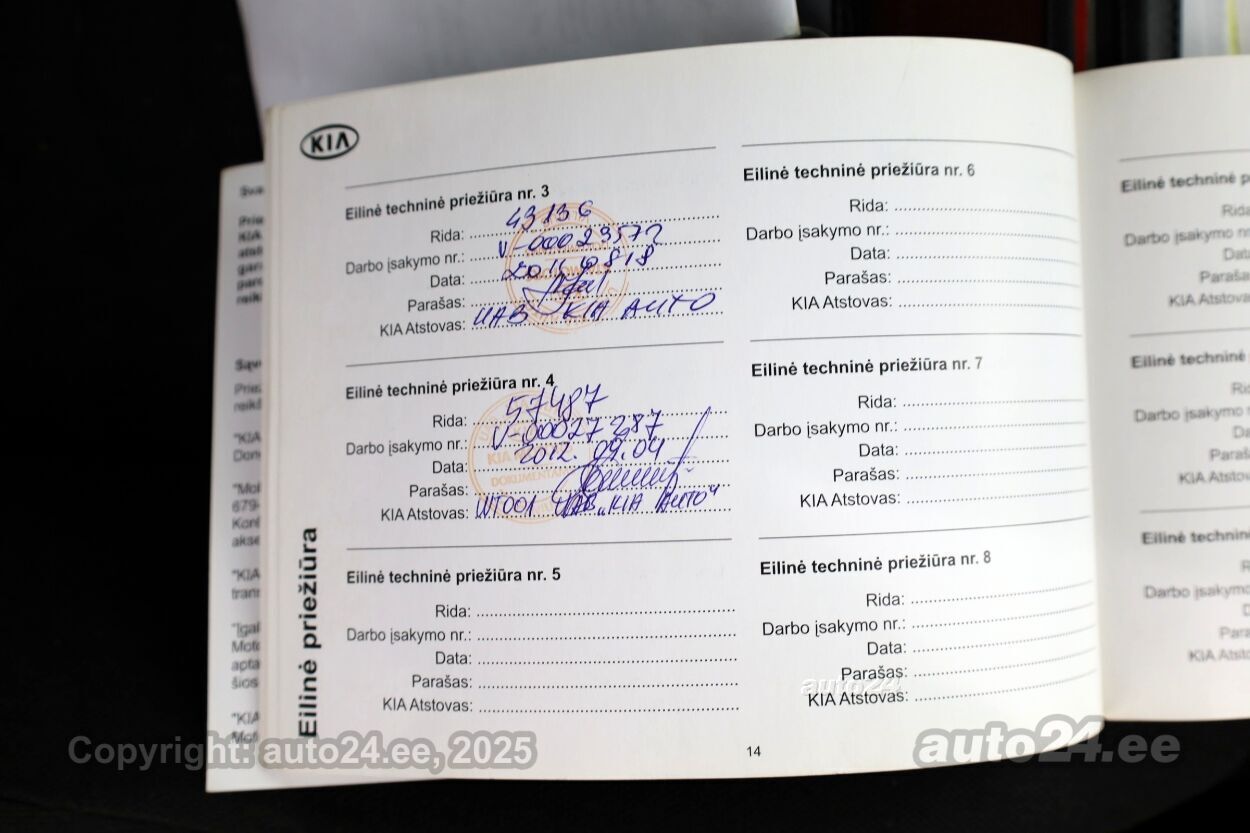 KIA
Eilinė priežiūra
Eilinė techninė priežiūra nr. 3
Rida: 43136
Darbo įsakymo nr.: V-00023572
Data: 20110818
Parašas:
KIA Atstovas: UAB KIA AUTO
Eilinė techninė priežiūra nr. 4
Rida: 57487
Darbo įsakymo nr.: V-00027287
Data: 2012. 09.04
Parašas:
KIA Atstovas: WT001 UAB „KIA AUTO"
Eilinė techninė priežiūra nr. 5
Rida:
Darbo įsakymo nr.:
Data:
Parašas:
KIA Atstovas:
Eilinė techninė priežiūra nr. 6
Rida:
Darbo įsakymo nr.:
Data:
Parašas:
KIA Atstovas:
Eilinė techninė priežiūra nr. 7
Rida:
Darbo įsakymo nr.:
Data:
Parašas:
KIA Atstovas:
Eilinė techninė priežiūra nr. 8
Rida:
Darbo įsakymo nr.:
Data:
Parašas:
KIA Atstovas:
14
Eilinė techninė
Darbo įsakymo
KIA
Eilinė techninė
Darbo įsakymo
KIA
Eilinė
Darbo įsakymo
KIA
auto24
Copyright: auto24.ee, 2025
auto24.ee